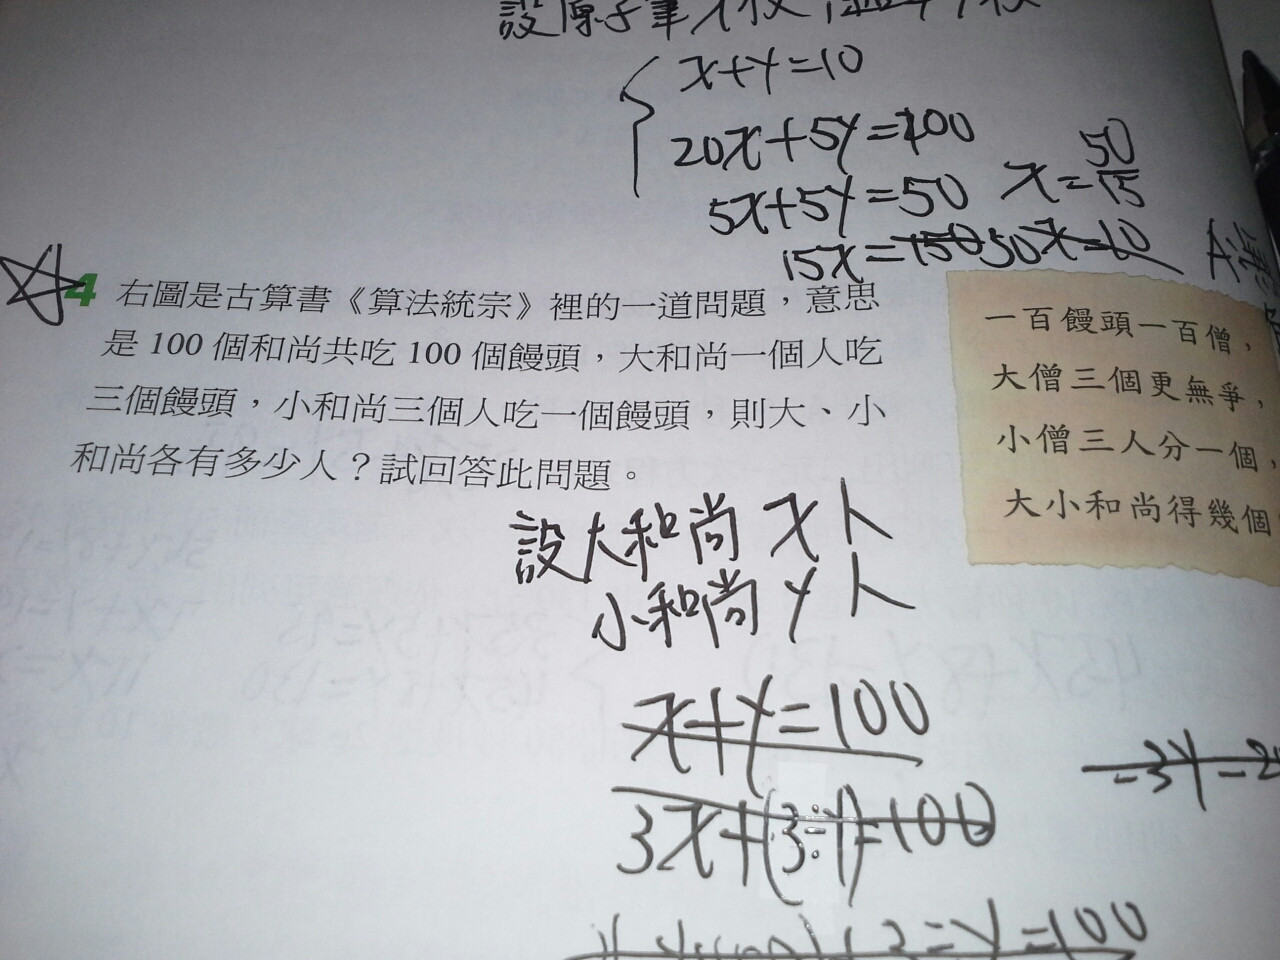 設原子筆x枝
x+y=10
20x+5y=100
5x+5y=50 x=50/15
15x=150 50 x=10
4 右圖是古算書《算法統宗》裡的一道問題，意思
是 100 個和尚共吃 100 個饅頭，大和尚一個人吃
三個饅頭，小和尚三個人吃一個饅頭，則大、小
和尚各有多少人？試回答此問題。
一百饅頭一百僧，
大僧三個更無爭，
小僧三人分一個，
大小和尚得幾個
設大和尚 x人
小和尚 y人
x+y=100
3x+(3÷y)=100
-3y=2